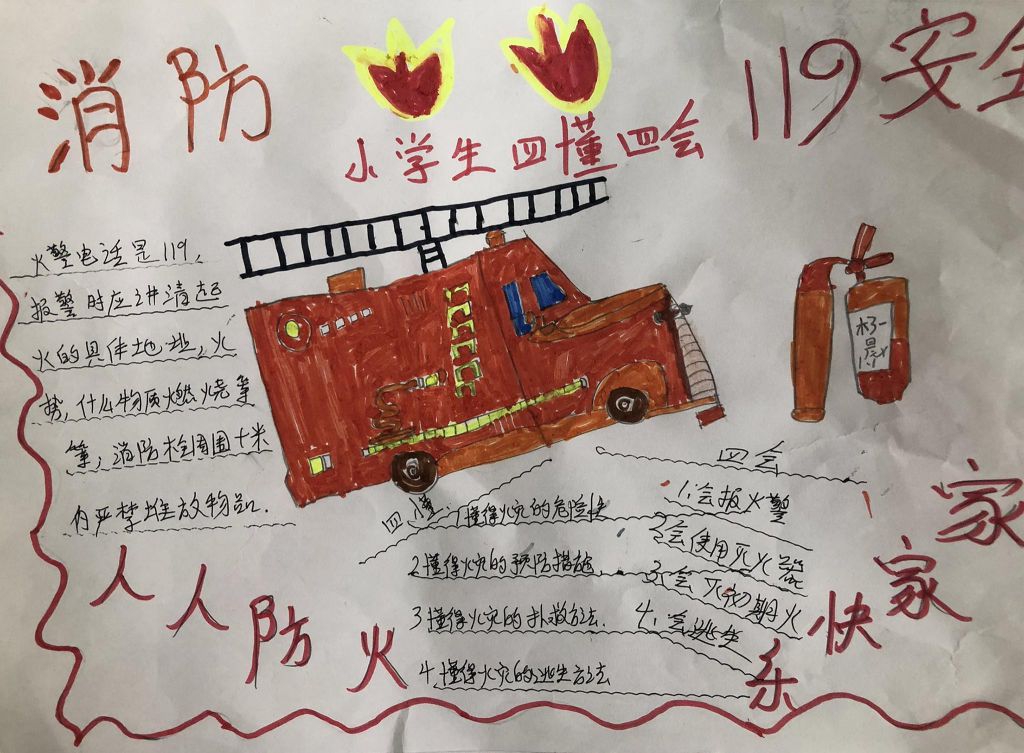 消防
119安全
小学生四懂四会
火警电话是119,
报警时应讲清起
火的具体地址,火
势,什么物质燃烧等
等,消防栓周围十米
内严禁堆放物品.
四懂
1懂得火灾的危险性
2.懂得火灾的预防措施.
3懂得火灾的扑救方法.
4.懂得火灾的逃生方法
四会
1.会报火警
2会使用灭火器
3.会灭初期火
4.会逃生
人人防火
家家快乐